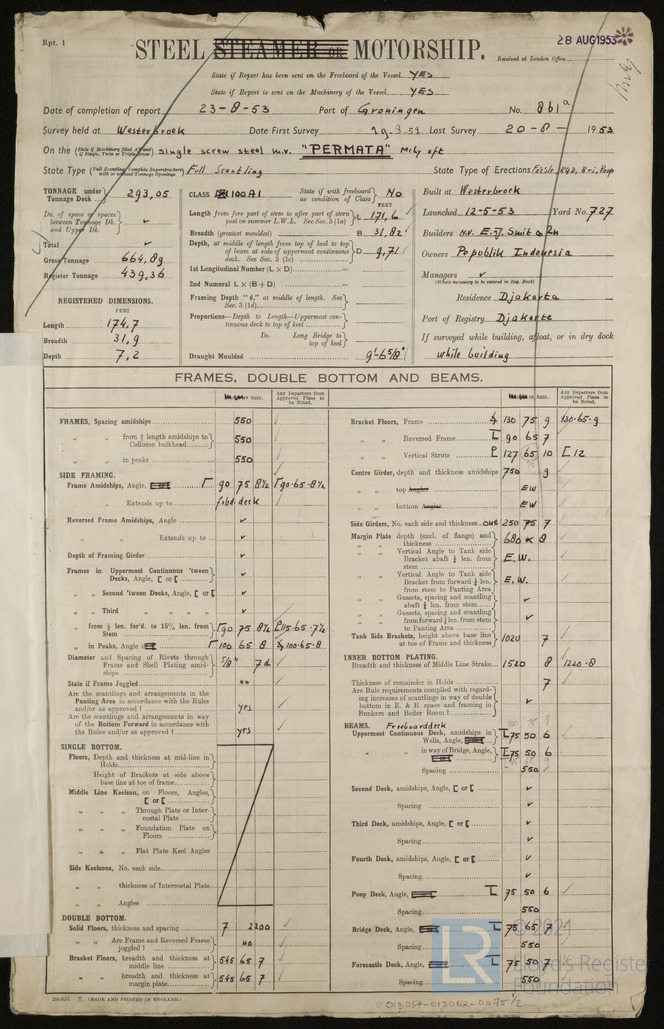 Rpt. 1
28 AUG 1953
STEEL STEAMER OR MOTORSHIP.
Received at London Office
State if Report has been sent on the Freeboard of the Vessel YES
State if Report is sent on the Machinery of the Vessel YES
Date of completion of report 23-8-53 Port of Groningen No. 861a
Survey held at Westerbroek Date First Survey Last Survey 20-8- 1953
On the single screw steel m.v. "PERMATA" Mchy aft
State Type Full Scantling State Type of Erections
TONNAGE under Tonnage Deck 293,05
Do. of space or spaces between Tonnage Dk. and Upper Dk.
Total
Gross Tonnage 664.89
Register Tonnage 439,36
REGISTERED DIMENSIONS.
FEET
Length 174,7
Breadth 31,9
Depth 7,2
CLASS 100A1 State if with freeboard as condition of Class No
FEET
Length from fore part of stem to after part of stern post on summer L.W.L. See Sec. 3 (1a) L 171,6
Breadth (greatest moulded) B 31,82
Depth, at middle of length from top of keel to top of beam at side of uppermost continuous deck. See Sec. 3 (1c) D 9,71
1st Longitudinal Number (L × D)
2nd Numeral L × (B + D)
Framing Depth "d," at middle of length. See Sec. 3 (1d)
Proportions—Depth to Length—Uppermost continuous deck to top of keel
Do. Long Bridge to top of keel
Draught Moulded 9'-6 5/8"
Built at Westerbroek
Launched 12-5-53 Yard No. 727
Builders N.V. E.J. Smit & Zn
Owners Republik Indonesia
Managers
(Where necessary to be entered in Reg. Book)
Residence Djakarta
Port of Registry Djakarta
If surveyed while building, afloat, or in dry dock
while building
FRAMES, DOUBLE BOTTOM AND BEAMS.
Any Departure from Approved Plans to be Noted.
Any Departure from Approved Plans to be Noted.
FRAMES, Spacing amidships 550
„ „ from ⅗ length amidships to Collision bulkhead 550
„ „ in peaks 550
SIDE FRAMING.
Frame Amidships, Angle 90 75 8½ 90·65·8½
„ „ Extends up to frbd. deck
Reversed Frame Amidships, Angle
„ „ Extends up to
Depth of Framing Girder
Frames in Uppermost Continuous 'tween Decks, Angle, [ or [
„ „ Second 'tween Decks, Angle, [ or [
„ „ Third „ „ „ „
„ „ from ⅗ len. for'd. to 15% len. from Stem 90 75 8½ 115·65·7½
„ „ in Peaks, Angle 100 65 8 100·65·8
Diameter and Spacing of Rivets through Frame and Shell Plating amidships 5/8" 7d
State if Frame Joggled no
Are the scantlings and arrangements in the Panting Area in accordance with the Rules and/or as approved? yes
Are the scantlings and arrangements in way of the Bottom Forward in accordance with the Rules and/or as approved? yes
SINGLE BOTTOM.
Floors, Depth and thickness at mid-line in Holds
„ Height of Brackets at side above base line at toe of frame
Middle Line Keelson, on Floors, Angles, [ or [
„ „ „ Through Plate or Intercostal Plate
„ „ „ Foundation Plate on Floors
„ „ „ Flat Plate Keel Angles
Side Keelsons, No. each side
„ „ thickness of Intercostal Plate
„ „ Angles
DOUBLE BOTTOM.
Solid Floors, thickness and spacing 7 2200
„ „ Are Frame and Reversed Frame joggled? no
Bracket Floors, breadth and thickness at middle line 545 65 7
„ „ breadth and thickness at margin plate 545 65 7
Bracket Floors, Frame 130 75 9 130·65·9
„ „ Reversed Frame 90 65 7
„ „ Vertical Struts 127 65 10 [ 12
Centre Girder, depth and thickness amidships 750 9
„ „ top Angles EW
„ „ bottom Angles EW
Side Girders, No. each side and thickness one 250 75 7
Margin Plate depth (excl. of flange) and thickness 680 8
„ „ Vertical Angle to Tank side Bracket abaft ¼ len. from stem E.W.
„ „ Vertical Angle to Tank side Bracket from forward ¼ len. from stem to Panting Area E.W.
„ „ Gussets, spacing and scantling abaft ¼ len. from stem
„ „ Gussets, spacing and scantling from forward ¼ len. from stem to Panting Area
Tank Side Brackets, height above base line at toe of Frame and thickness 1020 7
INNER BOTTOM PLATING.
Breadth and thickness of Middle Line Strake 1520 8 1220·8
Thickness of remainder in Holds 7
Are Rule requirements complied with regarding increases of scantlings in way of double bottom in E. & B. space and framing in Bunkers and Boiler Room?
BEAMS. Freeboarddeck
Uppermost Continuous Deck, amidships in Wells, Angle, 75 50 6
„ „ in way of Bridge, Angle, 75 50 6
Spacing 550
Second Deck, amidships, Angle, [ or [
Spacing
Third Deck, amidships, Angle, [ or [
Spacing
Fourth Deck, amidships, Angle, [ or [
Spacing
Poop Deck, Angle, 75 50 6
Spacing 550
Bridge Deck, Angle, 75 65 7
Spacing 550
Forecastle Deck, Angle, 75 50 7
Spacing 550
(MADE AND PRINTED IN ENGLAND.)
013054-013062-0075 1/2
LR
© 2021
Lloyd's Register
Foundation